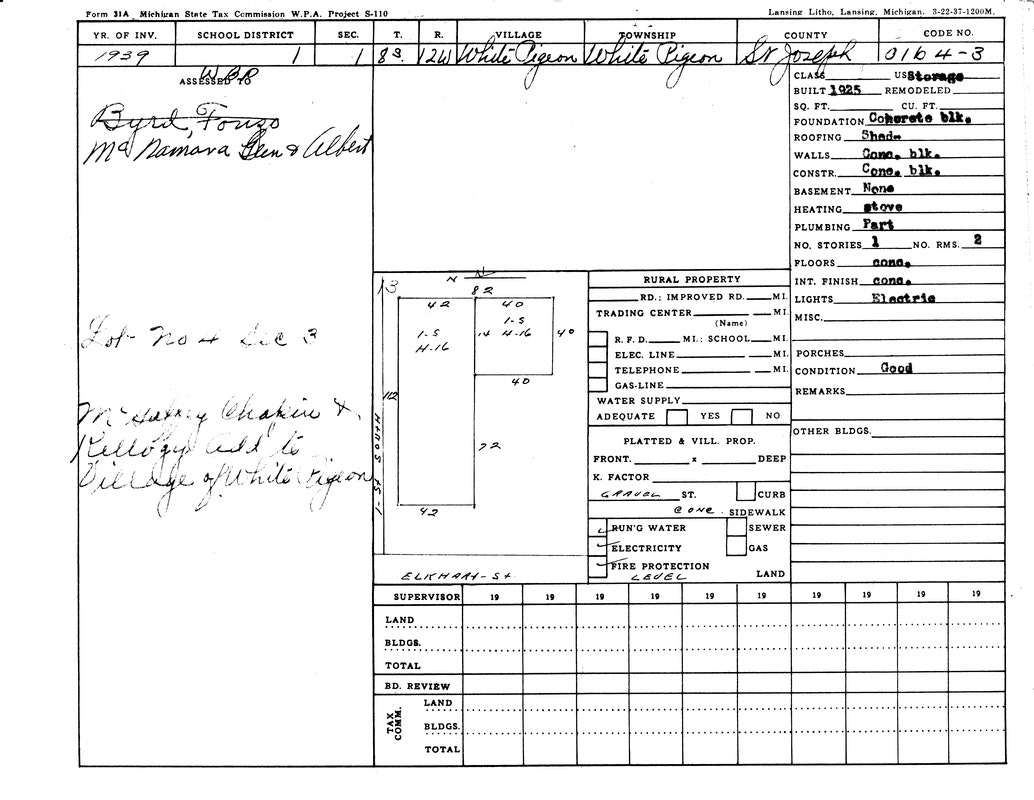 Form 31A Michigan State Tax Commission W.P.A. Project S-110
Lansing Litho, Lansing, Michigan. 3-22-37-1200M.
YR. OF INV. SCHOOL DISTRICT SEC. T. R. VILLAGE TOWNSHIP COUNTY CODE NO.
1939 1 1 8S. 12W White Pigeon White Pigeon St Joseph 0164-3
ASSESSED TO
Byrd, Fonso
McNamara Glen & Albert
Lot No 4 Sec 3
Chapin &
Kellogg Add to
Village of White Pigeon
13
N
82
42 40
1-S
H-16
14
1-S
H-16
40
40
112
72
42
1-ST SOUTH
ELKHART-St
CLASS US Storage
BUILT 1925 REMODELED
SQ. FT. CU. FT.
FOUNDATION Concrete blk.
ROOFING Shed.
WALLS Conc. blk.
CONSTR. Conc. blk.
BASEMENT None
HEATING stove
PLUMBING Part
NO. STORIES 1 NO. RMS. 2
FLOORS conc.
INT. FINISH conc.
LIGHTS Electric
MISC.
PORCHES
CONDITION Good
REMARKS
OTHER BLDGS.
RURAL PROPERTY
RD.; IMPROVED RD. MI.
TRADING CENTER MI.
(Name)
R. F. D. MI.; SCHOOL MI.
ELEC. LINE MI.
TELEPHONE MI.
GAS-LINE
WATER SUPPLY
ADEQUATE YES NO
PLATTED & VILL. PROP.
FRONT. x DEEP
K. FACTOR
GRAVEL ST. CURB
@ ONE SIDEWALK
RUN'G WATER SEWER
ELECTRICITY GAS
FIRE PROTECTION
LEVEL LAND
SUPERVISOR 19 19 19 19 19 19 19 19 19 19
LAND
BLDGS.
TOTAL
BD. REVIEW
TAX COMM.
LAND
BLDGS.
TOTAL